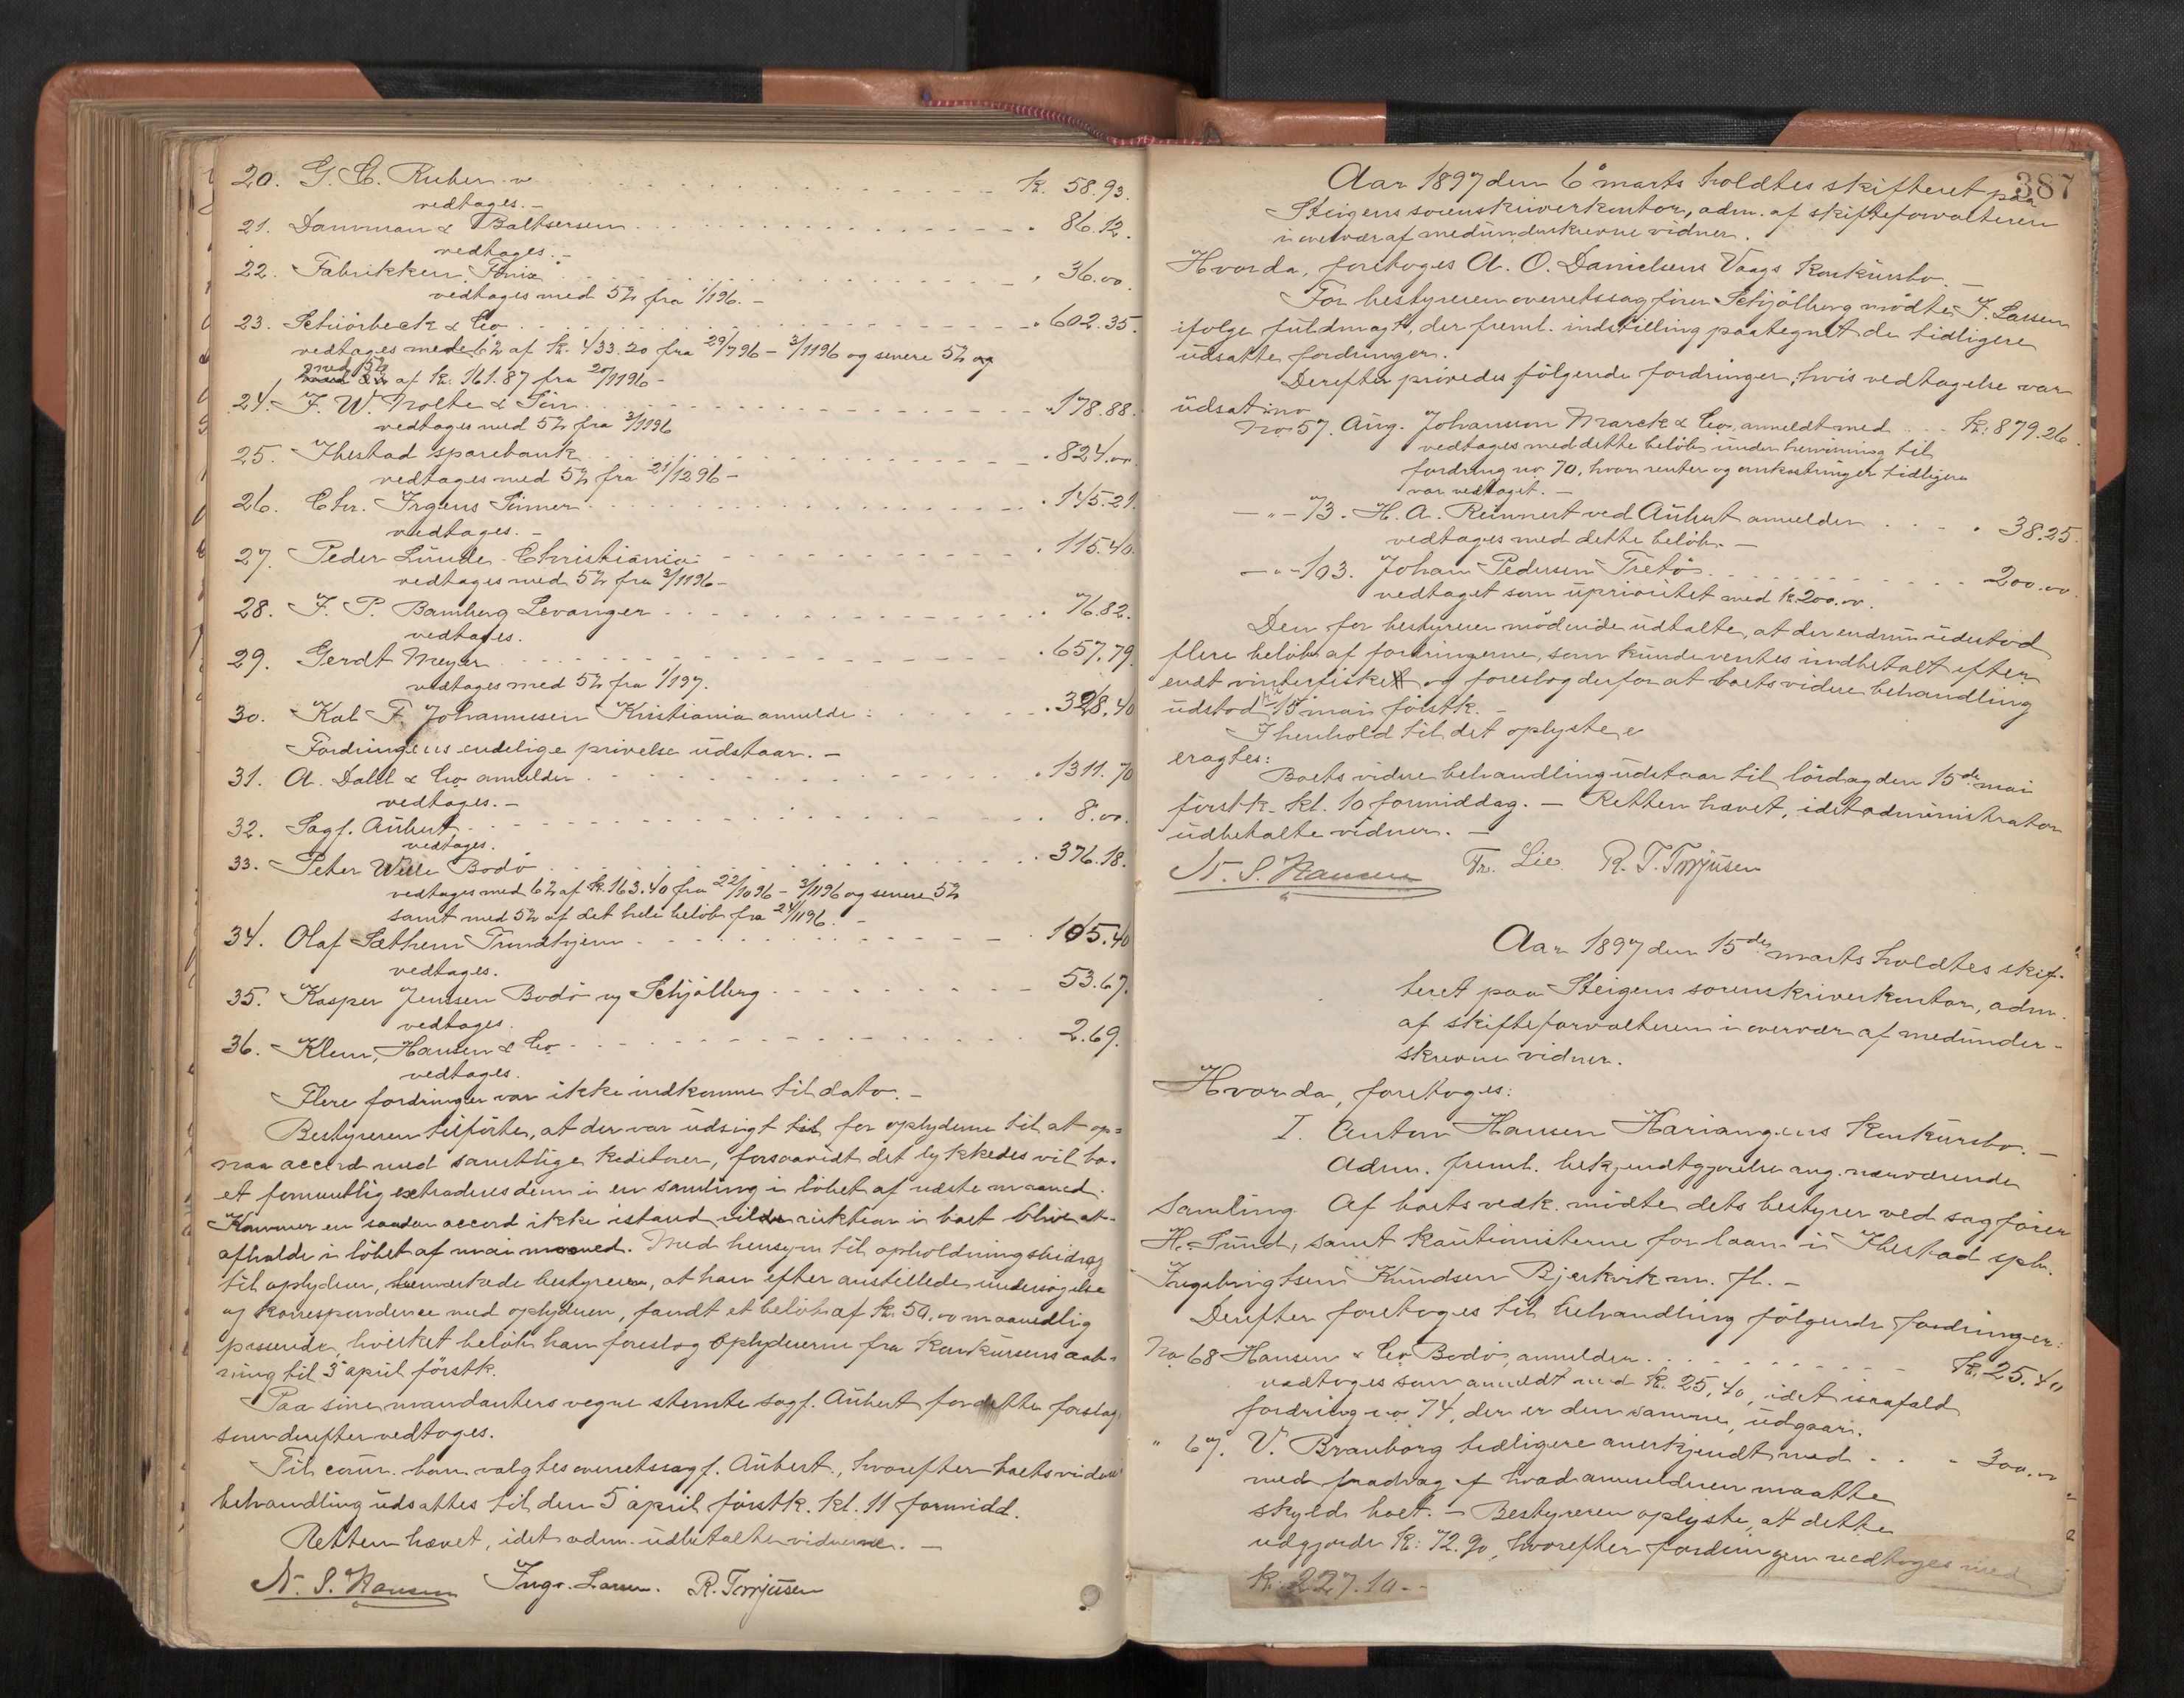 20. G. C. Rieber kr. 58.93.
vedtages. -
21. Damman & Baltsersen 86.12.
vedtages. -
22. Fabrikken Fönix 36.00.
vedtages med 5% fra 1/1 96. -
23. Schiörbeck & Co 602.35.
vedtages med 6% af kr. 433.20 fra 29/7 96 - 3/11 96 og senere 5% og
med 5% af kr. 161.87 fra 20/11 96 -
24. F. W. Nolte & Sön 178.88.
vedtages med 5% fra 3/11 96
25. Ibestad sparebank 824.00.
vedtages med 5% fra 21/12 96 -
26. Chr. Irgens Sönner 145.21.
vedtages. -
27. Peder Lunde - Christiania 115.40.
vedtages med 5% fra 3/11 96 -
28. F. P. Bamberg Levanger 76.82.
vedtages.
29. Gerdt Meyer 657.79.
vedtages med 5% fra 1/1 97.
30. Kal F. Johannesen Kristiania anmelder 328.40
Fordringens endelige prövelse udstaar. -
31. A. Dahl & Co anmelder 1311.70
vedtages. -
32. Sagf. Aubert 8.00.
vedtages.
33. Peter Wiele Bodö 376.18.
vedtages med 6% af kr. 163.40 fra 22/10 96 - 3/11 96 og senere 5%
samt med 5% af det hele belöb fra 24/11 96. -
34. Olaf Sæthern Trondhjem 105.40
vedtages.
35. Kasper Jensen Bodö og Schjölberg 53.67.
vedtages.
36. Klem, Hansen & Co 2.69.
vedtages.
Flere fordringer var ikke indkomne til dato. -
Bestyreren tilförte, at der var udsigt til for opbyderne til at op=
naa accord med samtlige kreditorer, forsaavidt det lykkedes vil bo-
et formentlig extraderes dem i en samling i löbet af næste maaned.
Kommer en saadan accord ikke istand vilde auktion i boet blive at-
afholde i löbet af mai maaned. Med hensyn til opholdningsbidrag
til opbyderen, bemærkede bestyreren, at han efter anstillede undersögelse
og korrespondence med opbyderen, fandt et belöb af kr. 50,00 maanedlig
passende, hvilket belöb han foreslog opbyderne fra konkursens aab-
ning til 5 april förstk.
Paa sine mandanters vegne stemte sagf. Aubert for dette forslag,
som derefter vedtoges.
Til cour. bom. valgtes overretssagf. Aubert., hvorefter boets videre
behandling udsattes til den 5 april förstk. kl. 11 formidd.
Retten hævet, idet adm. udbetalte vidnerne. -
N. S. Hansen Ingv. Larsen. R. Torrjusen
387
Aar 1897 den 6 marts holdtes skifteret paa
Steigens sorenskriverkontor, adm. af skifteforvalteren
i overvær af medunderskrevne vidner.
Hvorda, foretoges A. O. Danielsens Vaags konkursbo. -
For bestyreren overretssagförer Schjölberg mödte F. Larsen
ifölge fuldmagt, der freml. indstilling paategnet de tidligere
udsatte fordringer.
Derefter prövedes fölgende fordringer, hvis vedtagelse var
udsat:
No 57. Aug. Johanson Marck & Co, anmeldt med kr: 879.26.
vedtages med dette belöb under henvisning til
fordring no 70, hvor renter og omkostninger tidligere
var vedtaget. -
- " - 73. H. A. Reinnert ved Aubert anmelder 38.25.
vedtages med dette belöb. -
- " - 103. Johan Pedersen Tretö 200.00.
vedtaget som uprioritet med kr. 200.00.
Den for bestyreren mödende udtalte, at der endnu udestod
flere belöb af fordringerne, som kunde ventes indbetalt efter
endt vinterfiske og foreslog derfor at boets videre behandling
udstod til 15 mai förstk. -
I henhold til det oplyste
eragtes:
Boets videre behandling udstaar til lördag den 15de mai
förstk. kl. 10 formiddag. - Retten hævet, idet administrator
udbetalte vidner. -
N. S. Hansen Fr. Lie. R. T. Torrjusen
Aar 1897 den 15de marts holdtes skif-
teret paa Steigens sorenskriverkontor, adm.
af skifteforvalteren i overvær af medunder-
skrevne vidner.
Hvorda, foretoges:
I. Anton Hansen Hariangens konkursbo. -
Adm. freml. bekjendtgjörelse ang. nærværende
samling. Af boets vedk. mödte dets bestyrer ved sagförer
H. Sund, samt kautionisterne for laan i Ibestad spb.
Ingebrigtsen Knudsen Bjerkvik m. fl. -
Derefter foretoges til behandling fölgende fordringer:
No 68 Hansen & Co Bodö, anmelder kr. 25.40
vedtoges som anmeldt med kr. 25,40, idet isaafald
fordring no 74, der er den samme, udgaar.
" 67. V. Branborg tidligere anerkjendt med 300.00
med fradrag af hvad anmelderen maatte
skylde boet. - Bestyreren oplyste, at dette
udgjorde kr: 72.90, hvorefter fordringen vedtoges med
kr: 227.10. -